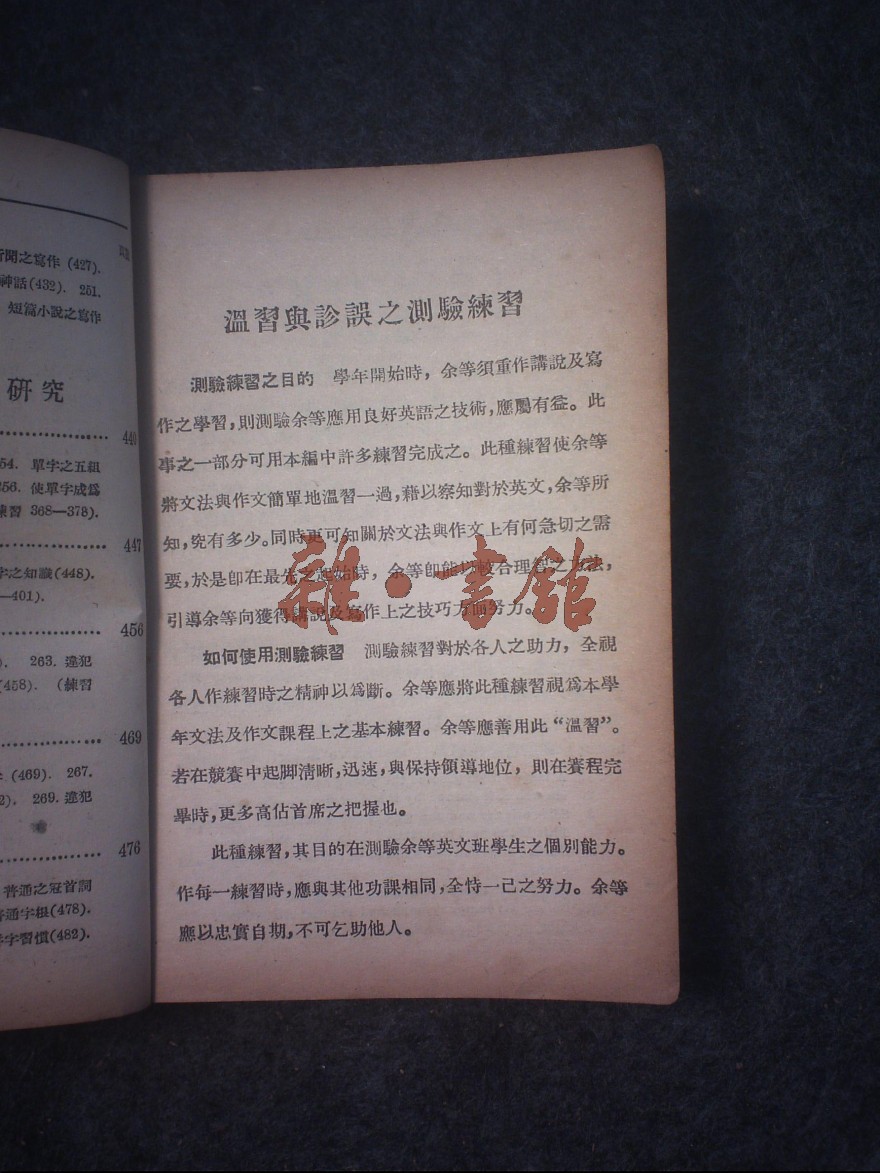 行聞之寫作 (427).
神話(432). 251.
短篇小說之寫作
研究
440
54. 單字之五組
256. 使單字成爲
練習 368—378).
447
字之知識(448).
—401).
456
263. 違犯
(458). (練習
469
(469). 267.
2), 269. 違犯
476
普通之冠首詞
普通字根(478).
拼字習慣(482).
溫習與診誤之測驗練習
測驗練習之目的 學年開始時，余等須重作講說及寫
作之學習，則測驗余等應用良好英語之技術，應屬有益。此
事之一部分可用本編中許多練習完成之。此種練習使余等
將文法與作文簡單地溫習一過，藉以察知對於英文，余等所
知，究有多少。同時更可知關於文法與作文上有何急切之需
要，於是卽在最先之起始時，余等卽能以較合理智之方法，
引導余等向獲得講說及寫作上之技巧方面努力。
如何使用測驗練習 測驗練習對於各人之助力，全視
各人作練習時之精神以爲斷。余等應將此種練習視爲本學
年文法及作文課程上之基本練習。余等應善用此“溫習”。
若在競賽中起脚清晰，迅速，與保持領導地位，則在賽程完
畢時，更多高佔首席之把握也。
此種練習，其目的在測驗余等英文班學生之個別能力。
作每一練習時，應與其他功課相同，全恃一己之努力。余等
應以忠實自期，不可乞助他人。
雜·書館